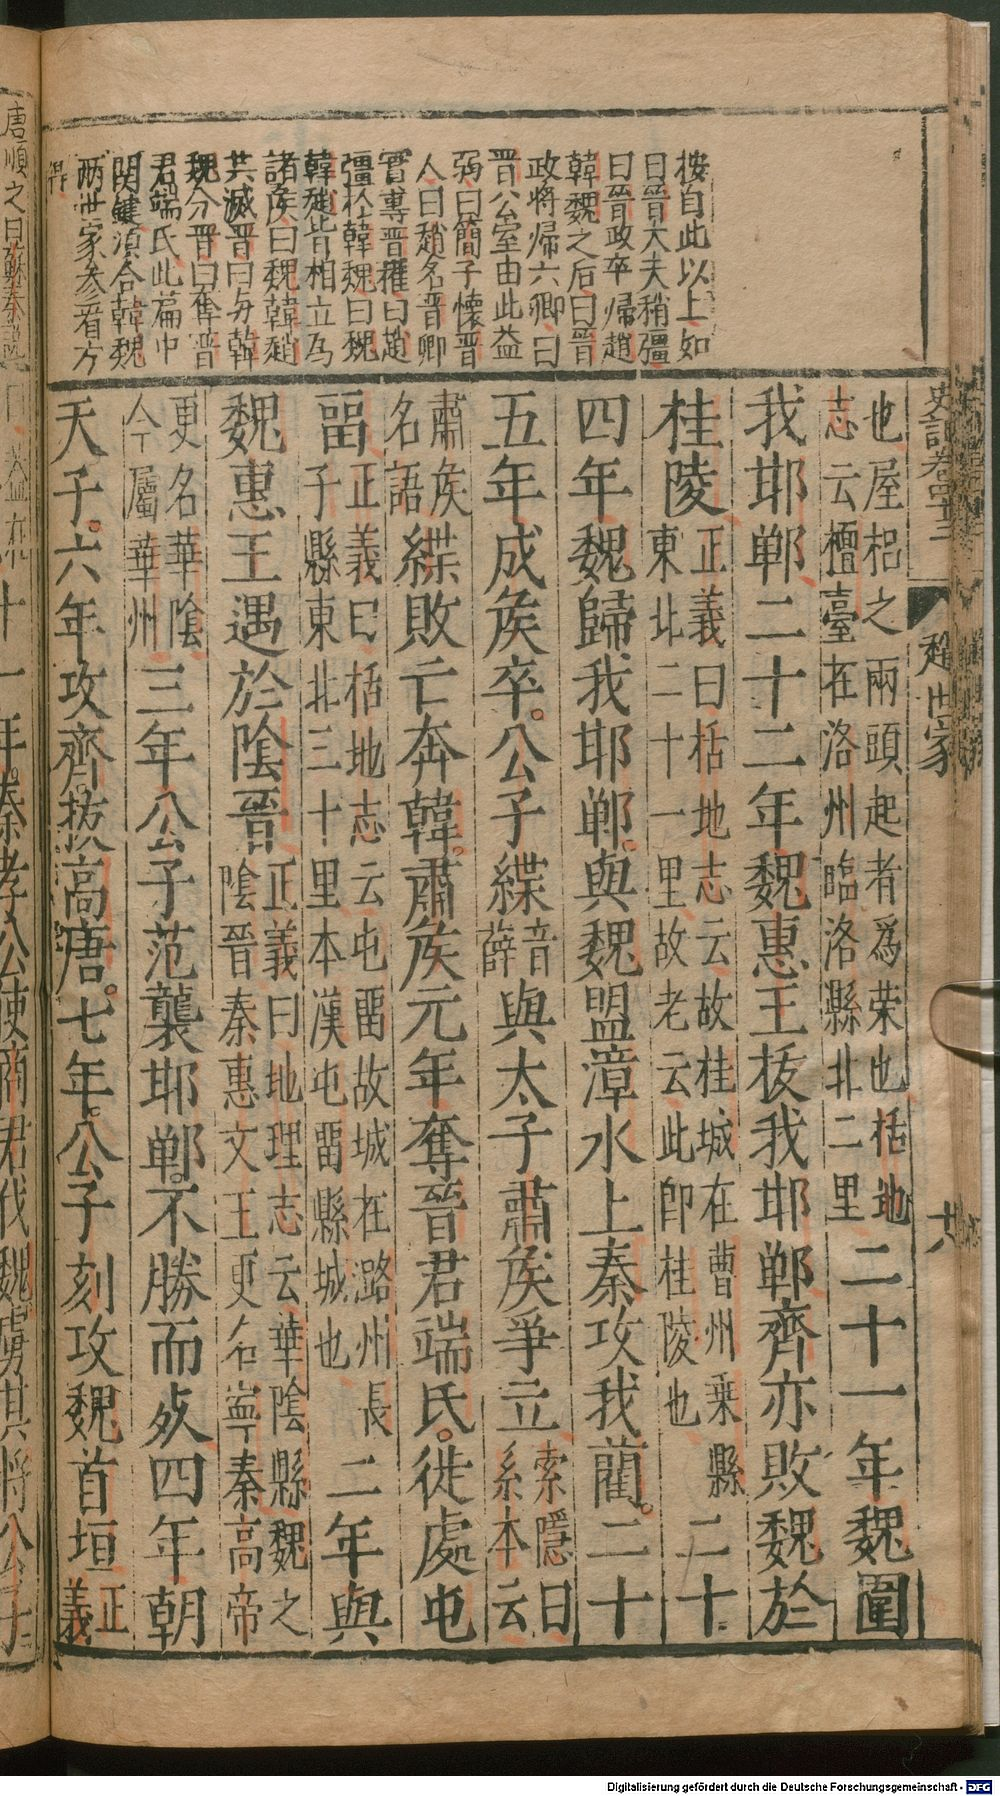 按自此以上如
曰晉大夫稍彊
曰晉政卒歸趙
韓魏之后曰晉
政將歸六卿曰
晉公室由此益
弱曰簡子懷晉
人曰趙名晉卿
實專晉權曰趙
彊於韓魏曰魏
韓趙皆相立為
諸侯曰魏韓趙
共滅晉曰与韓
魏分晉曰奪晉
君端氏此篇中
関鍵須合韓魏
兩世家参看方
得
史記卷四十三
趙世家
十八
也屋梠之兩頭起者爲荣也括地
志云檀臺在洛州臨洛縣北二里
二十一年魏圍
我邯鄲二十二年魏惠王拔我邯鄲齊亦敗魏於
桂陵
正義曰括地志云故桂城在曹州乘縣
東北二十一里故老云此卽桂陵也
二十
四年魏歸我邯鄲。與魏盟漳水上秦攻我藺。二十
五年成侯卒。公子緤
音
薛
與太子肅侯爭立
索隱曰
系本云
肅侯
名語
緤敗亡奔韓。肅侯元年奪晉君端氏。徙處屯
畱
正義曰括地志云屯畱故城在潞州長
子縣東北三十里本漢屯畱縣城也
二年與
魏惠王遇於陰晉
正義曰地理志云華陰縣魏之
陰晉秦惠文王更名寧秦高帝
更名華陰
今屬華州
三年公子范襲邯鄲。不勝而死四年朝
天子。六年攻齊。拔高唐。七年。公子刻攻魏首垣
正
義
唐順之曰蘇秦説
十一年。秦孝公使商君伐魏虜其將公子
Digitalisierung gefördert durch die Deutsche Forschungsgemeinschaft - DFG